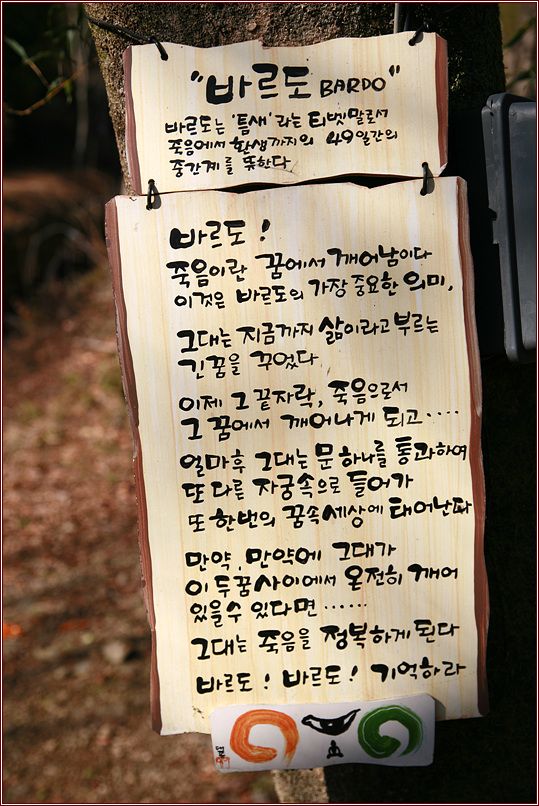 "바르도 BARDO"
바르도는 '틈새'라는 티벳말로서
죽음에서 환생까지의 49일간의
중간계를 뜻한다
바르도!
죽음이란 꿈에서 깨어남이다
이것은 바르도의 가장 중요한 의미,
그대는 지금까지 삶이라고 부르는
긴꿈을 꾸었다
이제 그 끝자락, 죽음으로서
그 꿈에서 깨어나게 되고····
얼마후 그대는 문 하나를 통과하여
또 다른 자궁속으로 들어가
또 한번의 꿈속 세상에 태어난다
만약, 만약에 그대가
이 두꿈 사이에서 온전히 깨어
있을수 있다면······
그대는 죽음을 정복하게 된다
바르도! 바르도! 기억하라